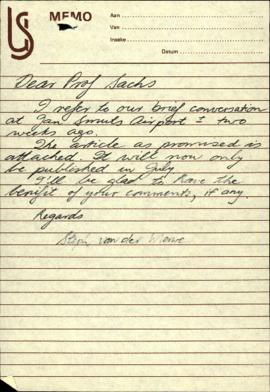 MEMO
Aan
Van
Insake
Datum
Dear Prof Sachs
I refer to our brief conversation
at Jan Smuts Airport ± two
weeks ago.
The article as promised is
attached. It will now only
be published in July.
I'll be glad to have the
benefit of your comments, if any.
Regards
van der Merwe